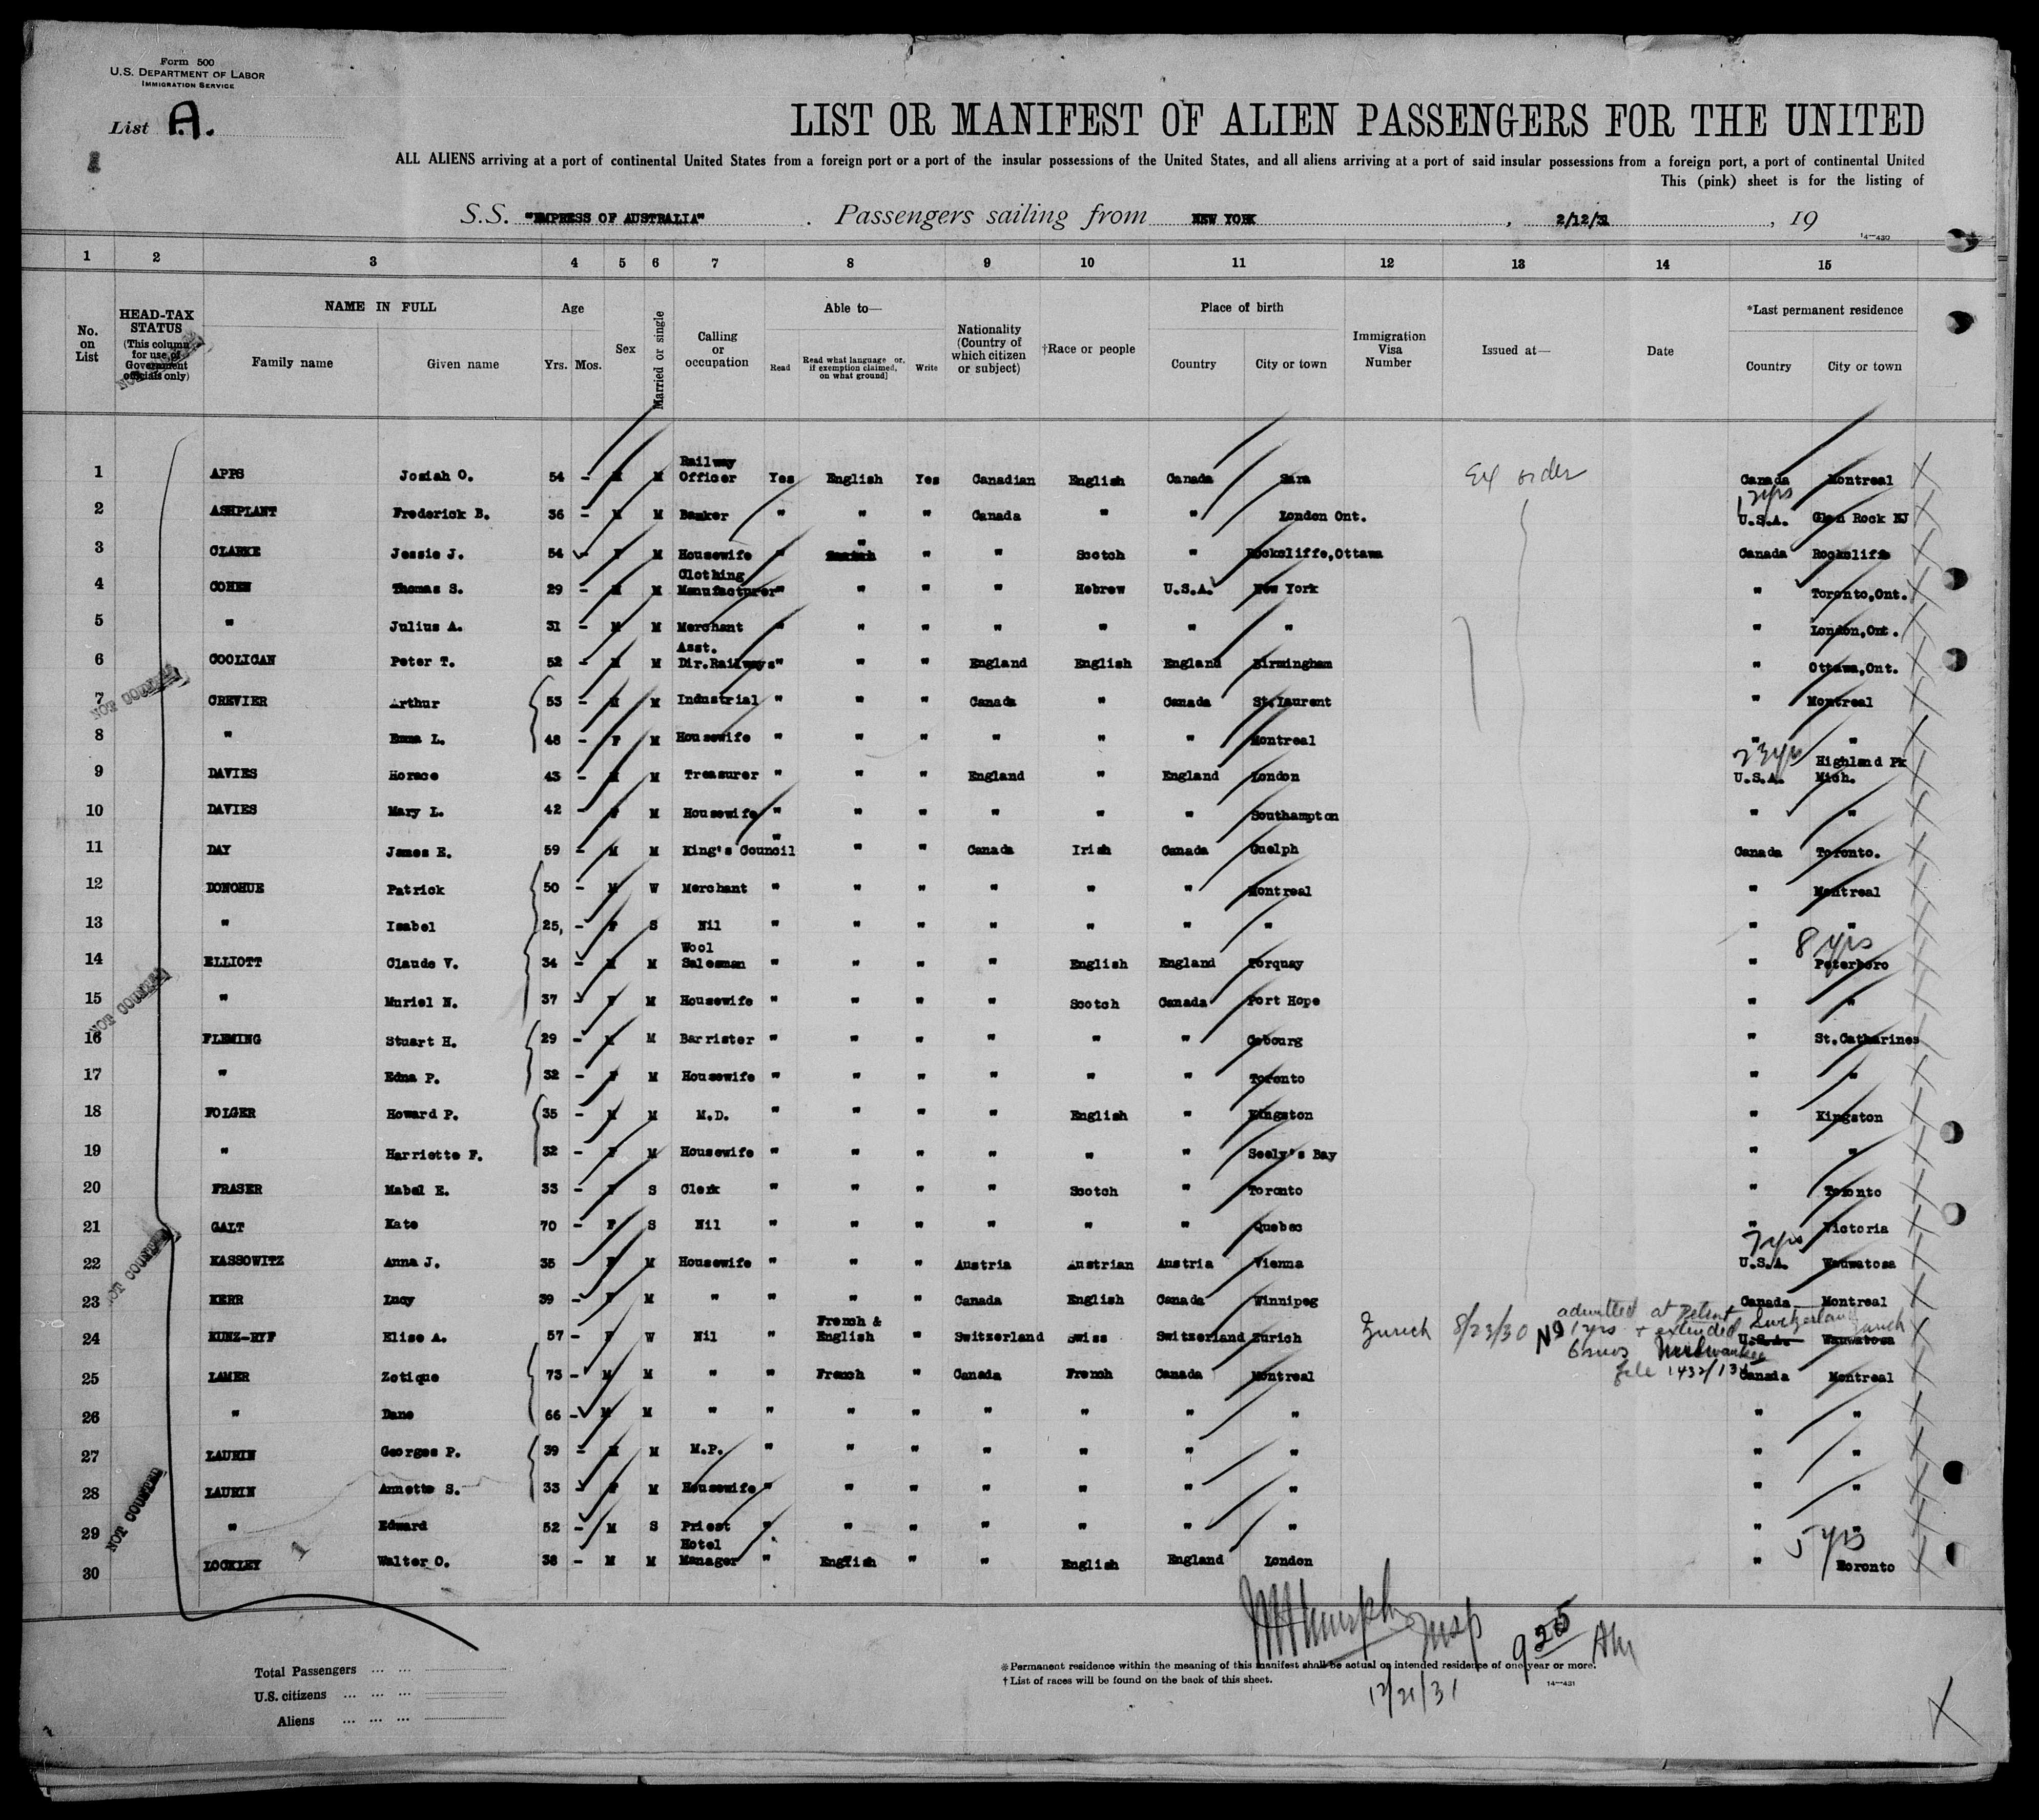 Form 500
U.S. DEPARTMENT OF LABOR
IMMIGRATION SERVICE
List A.
LIST OR MANIFEST OF ALIEN PASSENGERS FOR THE UNITED
ALL ALIENS arriving at a port of continental United States from a foreign port or a port of the insular possessions of the United States, and all aliens arriving at a port of said insular possessions from a foreign port, a port of continental United
This (pink) sheet is for the listing of
S.S. "EMPRESS OF AUSTRALIA" . Passengers sailing from NEW YORK , 2/12/31 , 19
14—430
1 2 3 4 5 6 7 8 9 10 11 12 13 14 15
No. on List
HEAD-TAX STATUS (This column for use of Government officials only)
NAME IN FULL
Family name Given name
Age
Yrs. Mos.
Sex
Married or single
Calling or occupation
Able to—
Read Read what language or, if exemption claimed, on what ground] Write
Nationality (Country of which citizen or subject)
†Race or people
Place of birth
Country City or town
Immigration Visa Number
Issued at—
Date
*Last permanent residence
Country City or town
1 APPS Josiah O. 54 - M M Railway Officer Yes English Yes Canadian English Canada Ex order Canada Montreal
2 ASHPLANT Frederick B. 36 - M M Banker " " " Canada " " London Ont. U.S.A. Glen Rock NJ
3 CLARKE Jessie J. 54 - F M Housewife " " " " Scotch " Rockcliffe,Ottawa Canada Rockcliffe
4 COHEN Thomas S. 29 - M M Clothing Manufacturer " " " " Hebrew U.S.A. New York " Toronto,Ont.
5 " Julius A. 31 - M M Merchant " " " " " " " " London,Ont.
6 COOLICAN Peter T. 52 - M M Asst. Dir.Railways " " " England English England Birmingham " Ottawa,Ont.
7 CREVIER Arthur 53 - M M Industrial " " " Canada " Canada St.Laurent " Montreal
8 " Emma L. 48 - F M Housewife " " " " " " Montreal " "
9 DAVIES Horace 43 - M M Treasurer " " " England " England London U.S.A. Highland Pk Mich.
10 DAVIES Mary L. 42 - F M Housewife " " " " " " Southampton " "
11 DAY James E. 59 - M M King's Council " " " Canada Irish Canada Guelph Canada Toronto.
12 DONOHUE Patrick 50 - M W Merchant " " " " " " Montreal " Montreal
13 " Isabel 25, - F S Nil " " " " " " " " "
14 ELLIOTT Claude V. 34 - M M Wool Salesman " " " " English England Torquay " 8 yrs Peterboro
15 " Muriel N. 37 - F M Housewife " " " " Scotch Canada Port Hope " "
16 FLEMING Stuart H. 29 - M M Barrister " " " " " " Cobourg " St.Catharines
17 " Edna P. 32 - F M Housewife " " " " " " Toronto " "
18 FOLGER Howard P. 35 - M M M.D. " " " " English " Kingston " Kingston
19 " Harriette F. 32 - F M Housewife " " " " " " Seely's Bay " "
20 FRASER Mabel E. 33 - F S Clerk " " " " Scotch " Toronto " Toronto
21 GALT Kate 70 - F S Nil " " " " " " Quebec " Victoria
22 KASSOWITZ Anna J. 35 - F M Housewife " " " Austria Austrian Austria Vienna 7 yrs U.S.A. Wauwatosa
23 KERR Lucy 39 - F M " " " " Canada English Canada Winnipeg Canada Montreal
24 KUNZ-RYF Elise A. 57 - F W Nil " French & English " Switzerland Swiss Switzerland Zurich Zurich 8/23/30 admitted at 1 yrs + extended 6 mos Milwaukee file 1432/13 Switzerland Zurich U.S.A. Wauwatosa
25 LAMER Zotique 73 - M M " " French " Canada French Canada Montreal Canada Montreal
26 " Dane 66 - M M " " " " " " " " " "
27 LAURIN Georges P. 39 - M M M.P. " " " " " " " " "
28 LAURIN Annette S. 33 - F M Housewife " " " " " " " " "
29 " Edward 52 - M S Priest " " " " " " " " "
30 LOCKLEY Walter O. 38 - M M Hotel Manager " English " " English England London " 5 yrs Toronto
NOT COUNTED
NOT COUNTED
NOT COUNTED
NOT COUNTED
Total Passengers ... ...
U.S. citizens ... ... ...
Aliens ... ... ...
*Permanent residence within the meaning of this manifest shall be actual or intended residence of one year or more.
†List of races will be found on the back of this sheet.
14—431
12/21/31